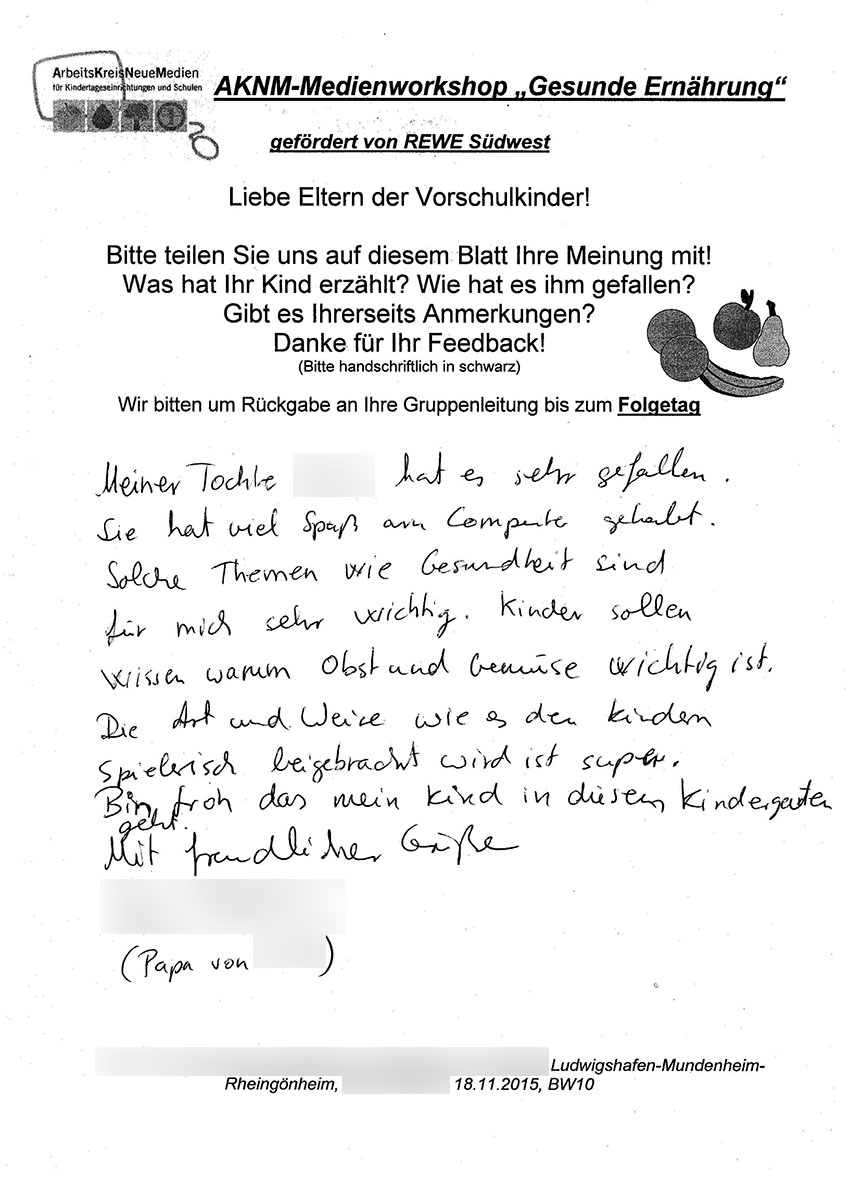 ArbeitsKreisNeueMedien
für Kindertageseinrichtungen und Schulen
AKNM-Medienworkshop „Gesunde Ernährung“
gefördert von REWE Südwest
Liebe Eltern der Vorschulkinder!
Bitte teilen Sie uns auf diesem Blatt Ihre Meinung mit!
Was hat Ihr Kind erzählt? Wie hat es ihm gefallen?
Gibt es Ihrerseits Anmerkungen?
Danke für Ihr Feedback!
(Bitte handschriftlich in schwarz)
Wir bitten um Rückgabe an Ihre Gruppenleitung bis zum Folgetag
Meiner Tochte hat es sehr gefallen.
Sie hat viel Spaß am Compute gehabt.
Solche Themen wie Gesundheit sind
für mich sehr wichtig. Kinder sollen
wissen warum Obst und Gemüse wichtig ist.
Die Art und Weise wie es den Kindern
spielerisch beigebracht wird ist super.
Bin froh das mein Kind in diesem Kindergarten
geht.
Mit freundlicher Grüße
(Papa von )
Ludwigshafen-Mundenheim-
Rheingönheim, 18.11.2015, BW10